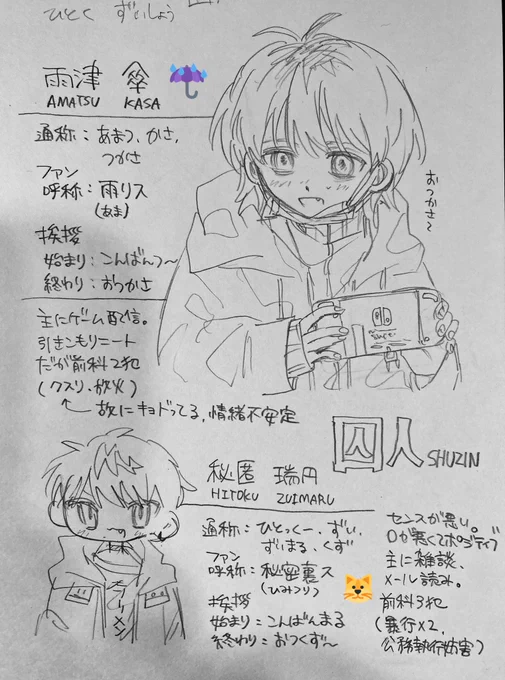 ひとく ずいしょう
雨津 傘
AMATSU KASA
通称：あまつ、かさ、
つかさ
ファン
呼称：雨リス
(あま)
挨拶
始まり：こんばんつ〜
終わり：おつかさ
主にゲーム配信。
引きこもりニート
だが前科2犯
(クスリ、放火)
故にキョドってる、情緒不安定
おつかさ〜
囚人 SHUZIN
秘匿 瑞円
HITOKU ZUIMARU
通称：ひとっくー、ずい、
ずいまる、くず
ファン
呼称：秘密裏ス
(ひみつり)
挨拶
始まり：こんばんまる
終わり：おつくず〜
センスが悪い。
口が悪くてポジティブ
主に雑談、
メール読み。
前科3犯
(暴行×2、
公務執行妨害)